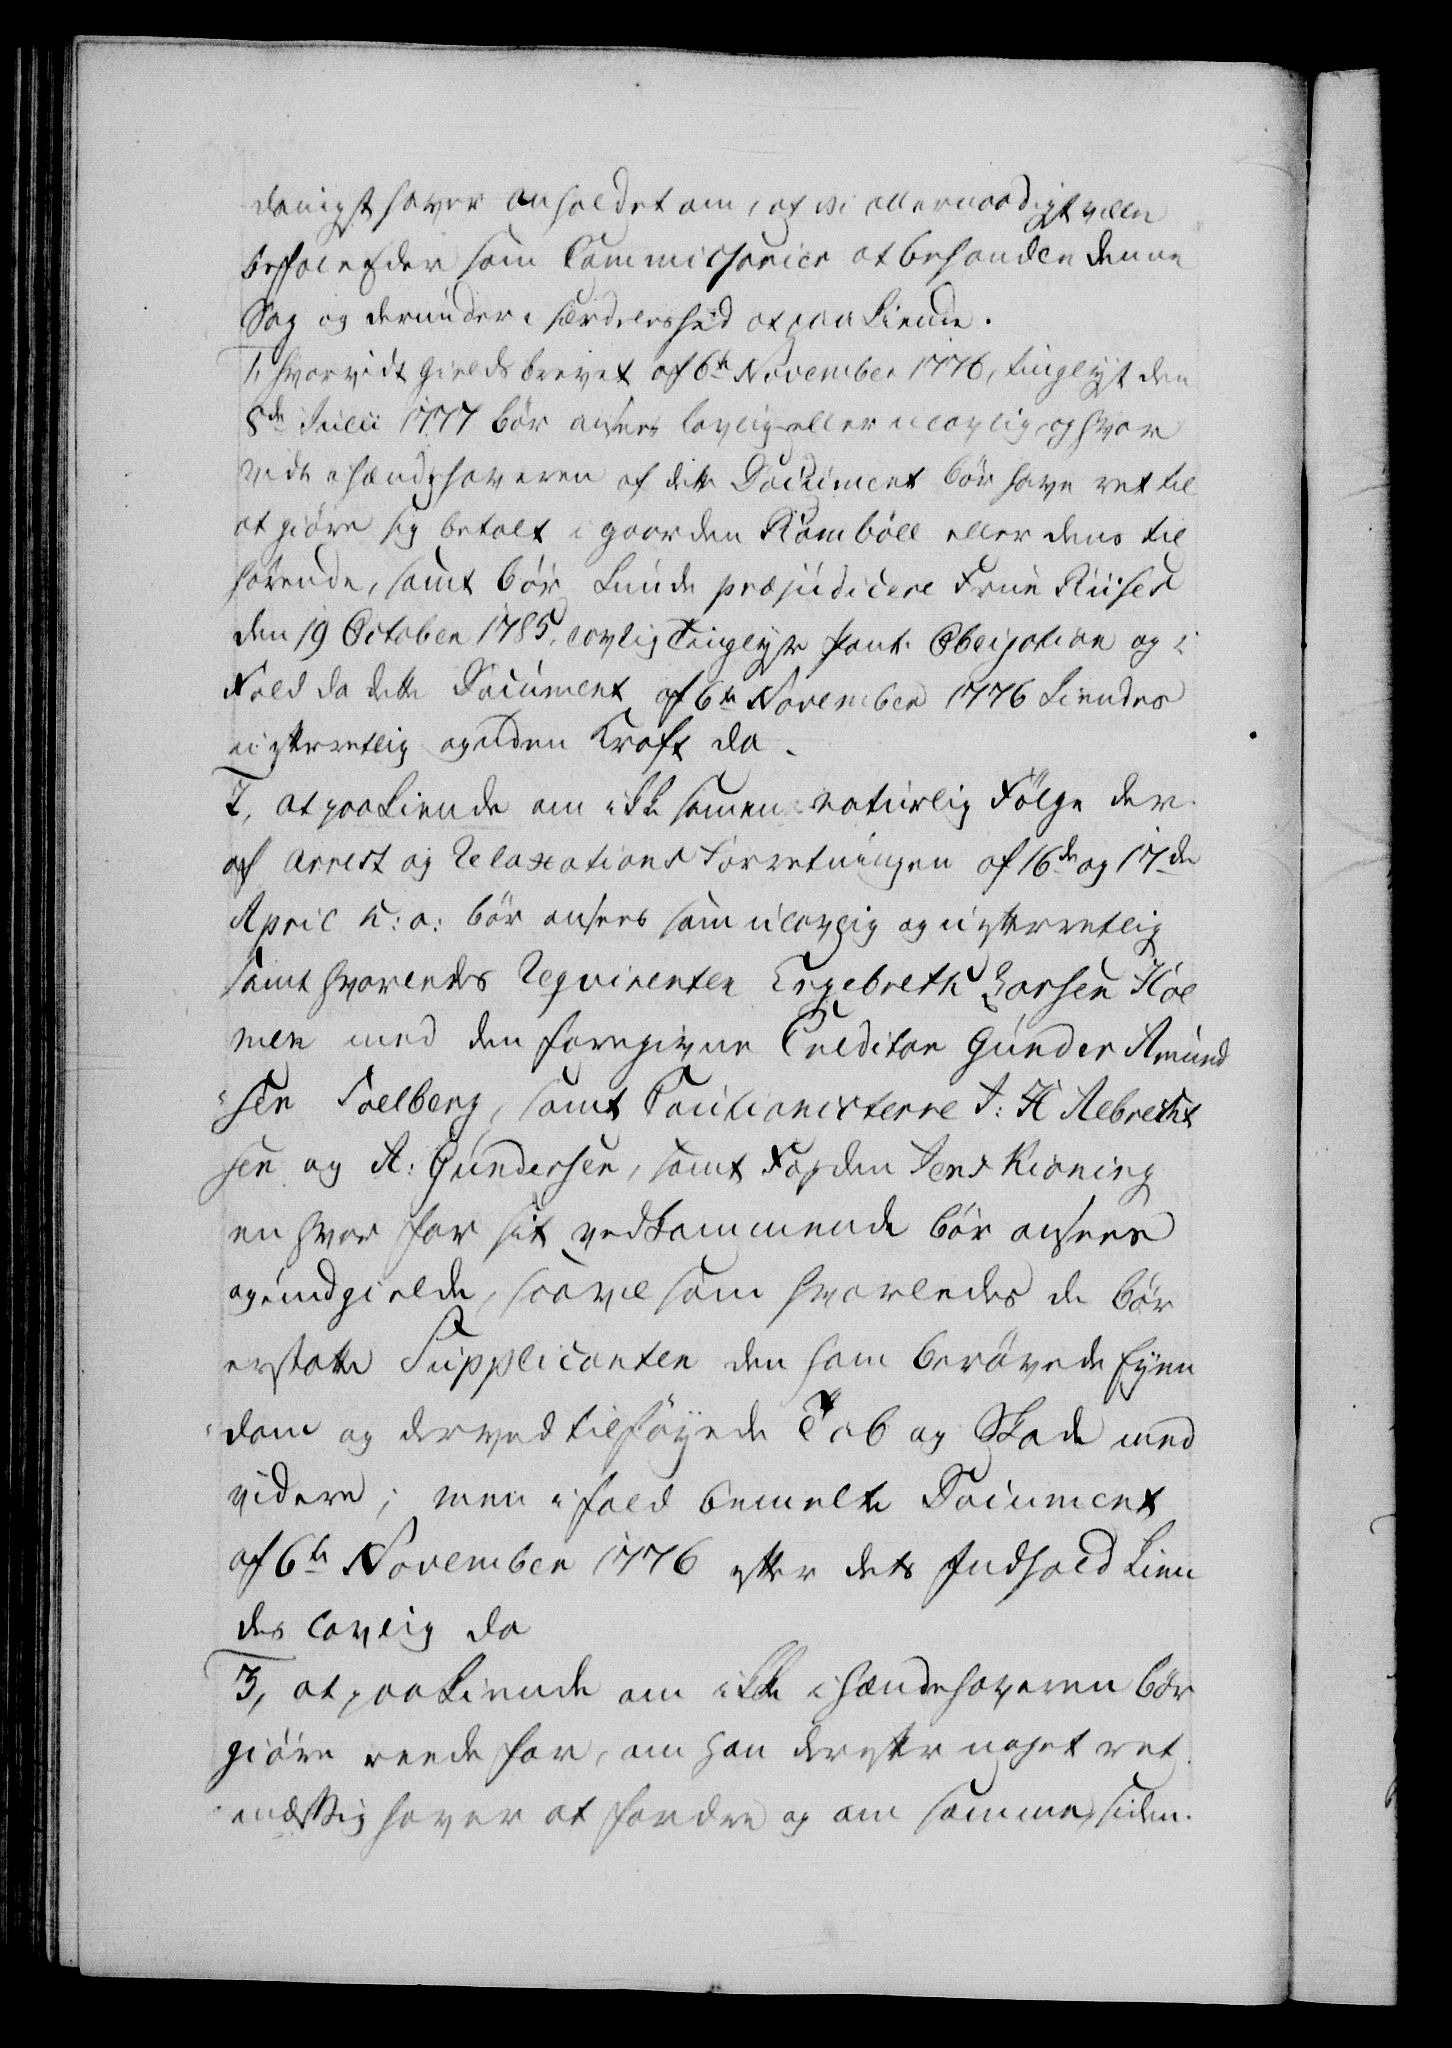 danigst haver anholdet om, at vi allernaadigst ville
befale Eder som Commissarier at behandle denne
Sag og derunder i særdeleshed at paakiende.
1, hvorvidt gields brevet af 6te November 1776, tinglyst den
8de Julii 1777 bör ansees lovlig eller ulovlig, og hvor
vidt ihændehaveren af dette Document bör have ret til
at giöre sig betalt i gaarden Ramböll eller dens til
hörende, samt bör kunde præjudicere Frue Riises
den 19 October 1785, lovlig Tinglyste Pante Obligation og i
Fald da dette Document af 6te November 1776 kiendes
uefterretlig og uden Kraft da.
2, at paakiende om ikke som en naturlig Fölge der
af Arrest og Relaxations Forretningen af 16de og 17de
April h: a: bör ansees som ulovlig og uefterretlig
samt hvorledes Requirenten Engebreth Larsen Hol
men med den foregivne Creditor Gunder Amund
sen Soelberg, samt Cautionisterne J: H Albrecht
sen og A: Gundersen, samt Fogden Jens Kioning
en hver for sit vedkommende bör ansees
og undgielde, saavel som hvorledes de bör
erstatte Supplicanten den ham berövede Eyen
dom og derved tilföyede Tab og Skade med
videre; men ifald bemelte Document
af 6te November 1776 efter dets Indhold kien
des lovlig da
3, at paakiende om ikke ihændehaveren bör
giöre reede for, om han derefter noget ret
mæssig haver at fordre og om samme siden